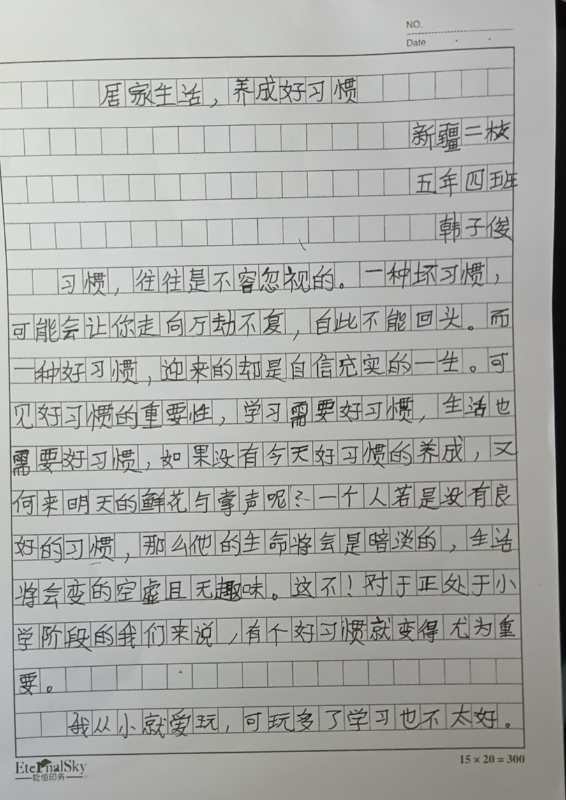 NO.
Date
居家生活，养成好习惯
新疆二校
五年四班
韩子俊
习惯，往往是不容忽视的。一种坏习惯，
可能会让你走向万劫不复，自此不能回头。而
一种好习惯，迎来的却是自信充实的一生。可
见好习惯的重要性，学习需要好习惯，生活也
需要好习惯，如果没有今天好习惯的养成，又
何来明天的鲜花与掌声呢？一个人若是没有良
好的习惯，那么他的生命将会是暗淡的，生活
将会变的空虚且无趣味。这不！对于正处于小
学阶段的我们来说，有个好习惯就变得尤为重
要。
我从小就爱玩，可玩多了学习也不太好。
EternalSky
乾恒印务
15 × 20 = 300